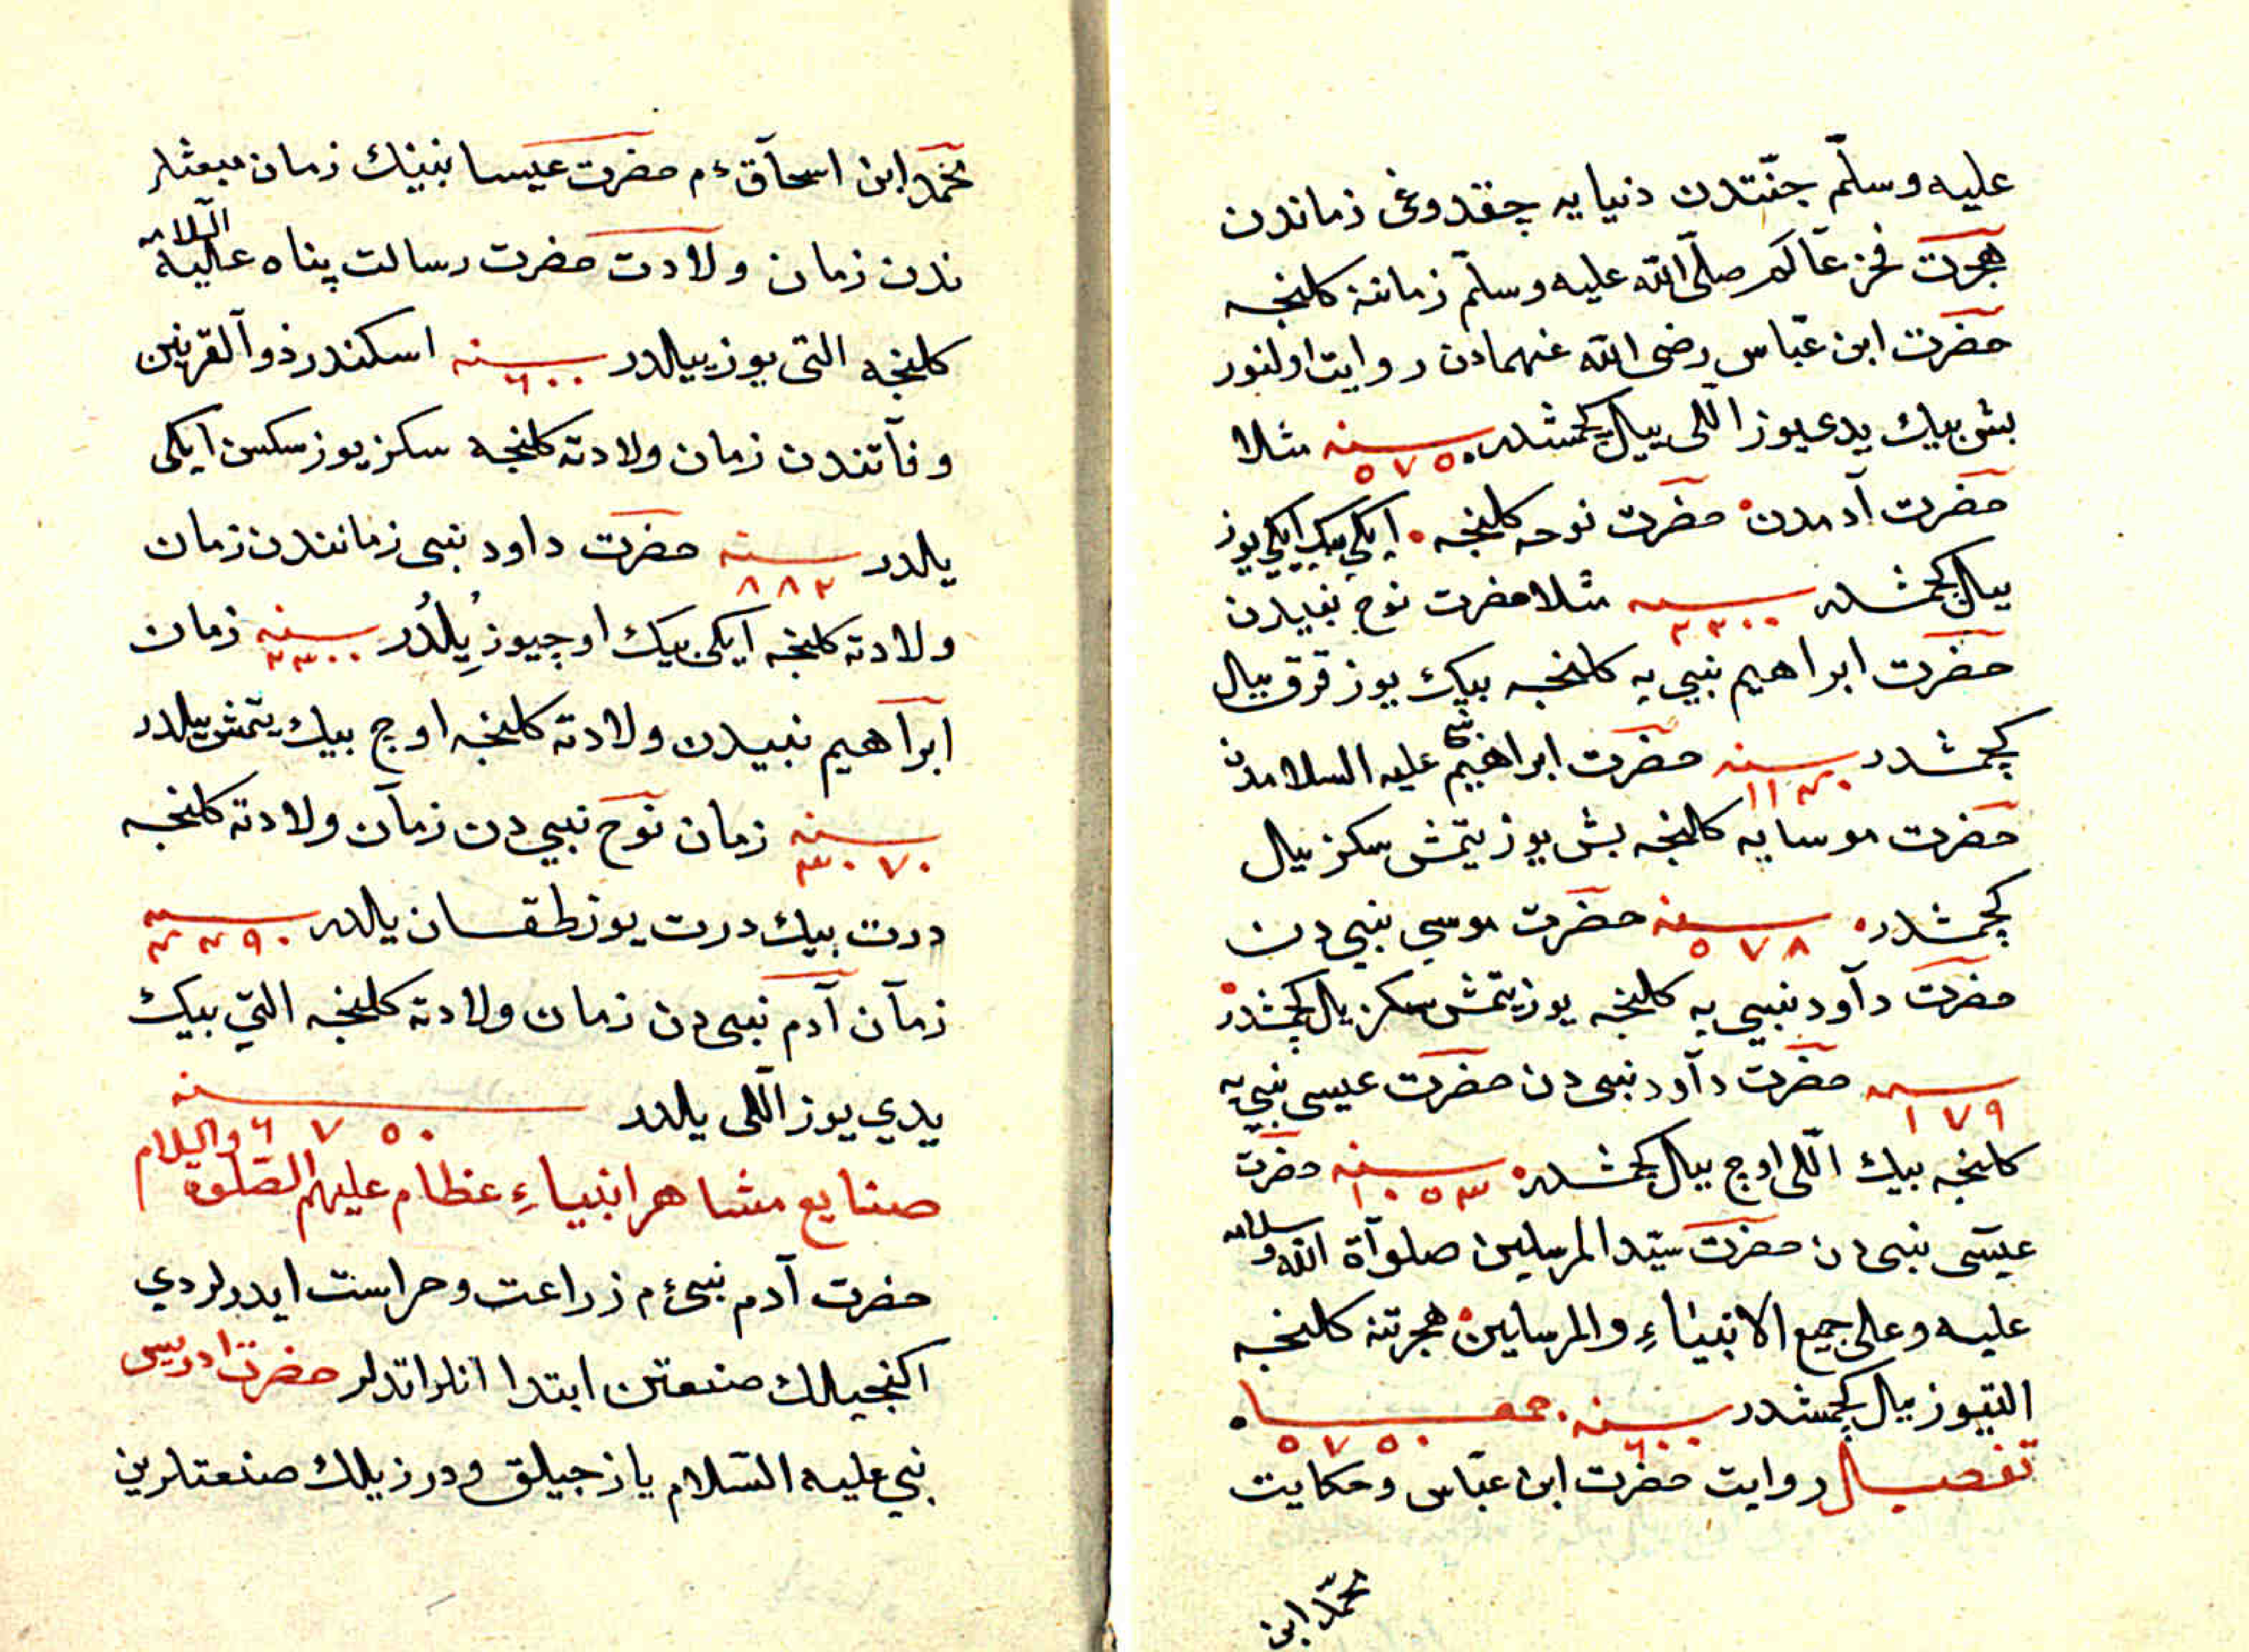 عليه وسلّم جنّتدن دنيايه چقدوغی زماندن
هجرت فخر عالم صلّی الله عليه وسلّم زماننه كلنجه
حضرت ابن عبّاس رضی الله عنهمادن روايت اولنور
بش بيك يدی يوز اللی ييل كچمشدر سنه ٥٧٥٠ مثلا
حضرت آدمدن حضرت نوحه كلنجه ايكی بيك ايكی يوز
ييل كچمشدر سنه ٢٢٠٠ مثلا حضرت نوح نبيدن
حضرت ابراهيم نبی يه كلنجه بيك يوز قرق ييل
كچمشدر سنه ١١٤٠ حضرت ابراهيم نبی عليه السلامدن
حضرت موسايه كلنجه بش يوز يتمش سكز ييل
كچمشدر سنه ٥٧٨ حضرت موسی نبی دن
حضرت داود نبی يه كلنجه يوز يتمش سكز يال كچمشدر
سنه ١٧٩ حضرت داود نبی دن حضرت عيسی نبی يه
كلنجه بيك اللی اوچ ييل كچمشدر سنه ١٠٥٣ حضرت
عيسی نبی دن حضرت سيّد المرسلين صلوة الله وسلامه
عليه وعلی جميع الانبياء والمرسلين هجرتنه كلنجه
التيوز ييل كچمشدر سنه ٦٠٠ جمعا ٥٧٥٠
تفصيل روايت حضرت ابن عبّاس وحكايت
محمّد ابن
محمّد ابن اسحاقءم حضرت عيسا نبينك زمان مبعثلر
ندن زمان ولادت حضرت رسالت پناه عليه السلامه
كلنجه التی يوز ييلدر سنه ٦٠٠ اسكندر ذو القرنين
وفاتندن زمان ولادته كلنجه سكز يوز سكسن ايكی
يلدر سنه ٨٨٢ حضرت داود نبی زمانندن زمان
ولادته كلنجه ايكی بيك اوچيوز يِلدُر سنه ٢٣٠٠ زمان
ابراهيم نبيدن ولادته كلنجه اوچ بيك يتمش ييلدر
سنه ٣٠٧٠ زمان نوح نبی دن زمان ولادته كلنجه
درت بيك درت يوز طقسان يلدر سنه ٤٤٩٠
زمان آدم نبی دن زمان ولادته كلنجه التی بيك
يدی يوز اللی يلدر سنه ٦٧٥٠
صنايع مشاهر انبياءِ عظام عليهم الصّلوة والسلام
حضرت آدم نبیءم زراعت وحراست ايدرلردی
اكنجيلك صنعتن ابتدا انلر اتدلر حضرت ادريس
نبی عليه السّلام يازجيلق ودرزيلك صنعتلرين